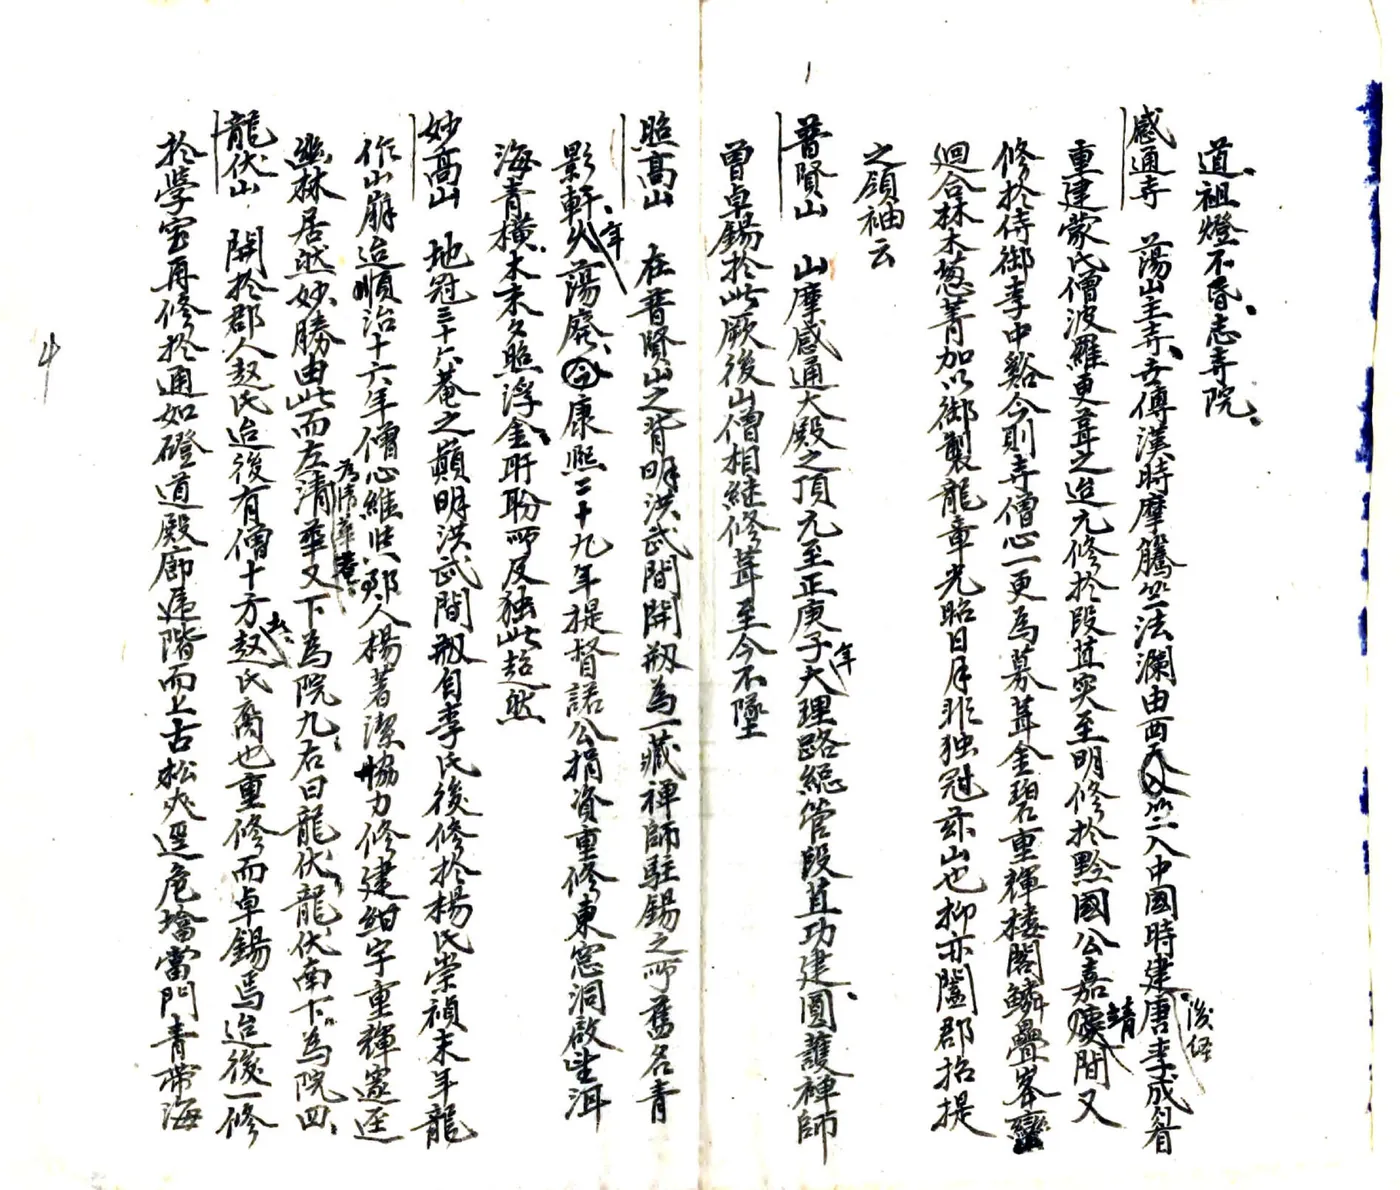 道祖燈不昏志寺院
感通寺　蕩山主寺古傳漢時摩騰竺法瀾由西天竺入中國時建後經唐李成眉
重建蒙氏僧波羅更葺之迨元修於段苴突至明修於黔國公嘉靖間又
修於侍御李中谿今則寺僧心一更為募葺金碧重輝楼閣鱗疊峯巒
迴合林木葱菁加以御製龍章光昭日月非独冠茲山也抑亦闔郡招提
之領袖云
普賢山　山摩感通大殿之頂元至正庚子年大理路総管段苴功建圓護禅師
曾卓錫於此厥後山僧相継修葺至今不墜
照高山　在普賢山之背明洪武間開剏為一藏禅師駐錫之所舊名青
影軒年火蕩廢今康熙二十九年提督諾公捐資重修東窓洞啟坐洱
海青横木末久照浮金盱盼所及独此超然
妙高山　地冠三十六菴之巔明洪武間剏自李氏後修於楊氏崇禎末年龍
作山崩迨順治十六年僧心維照郡人楊著潔恊力修建紺宇重輝邃逕
幽林居然妙勝由此而左為清華菴清華又下為院九右曰龍伏龍伏南下為院四
龍伏山　開於郡人赵氏迨後有僧十方赵氏裔也重修而卓錫焉迨後一修
於學宣再修於通如磴道殿廊遶階而上古松夾逕危墖當門青帶海
4